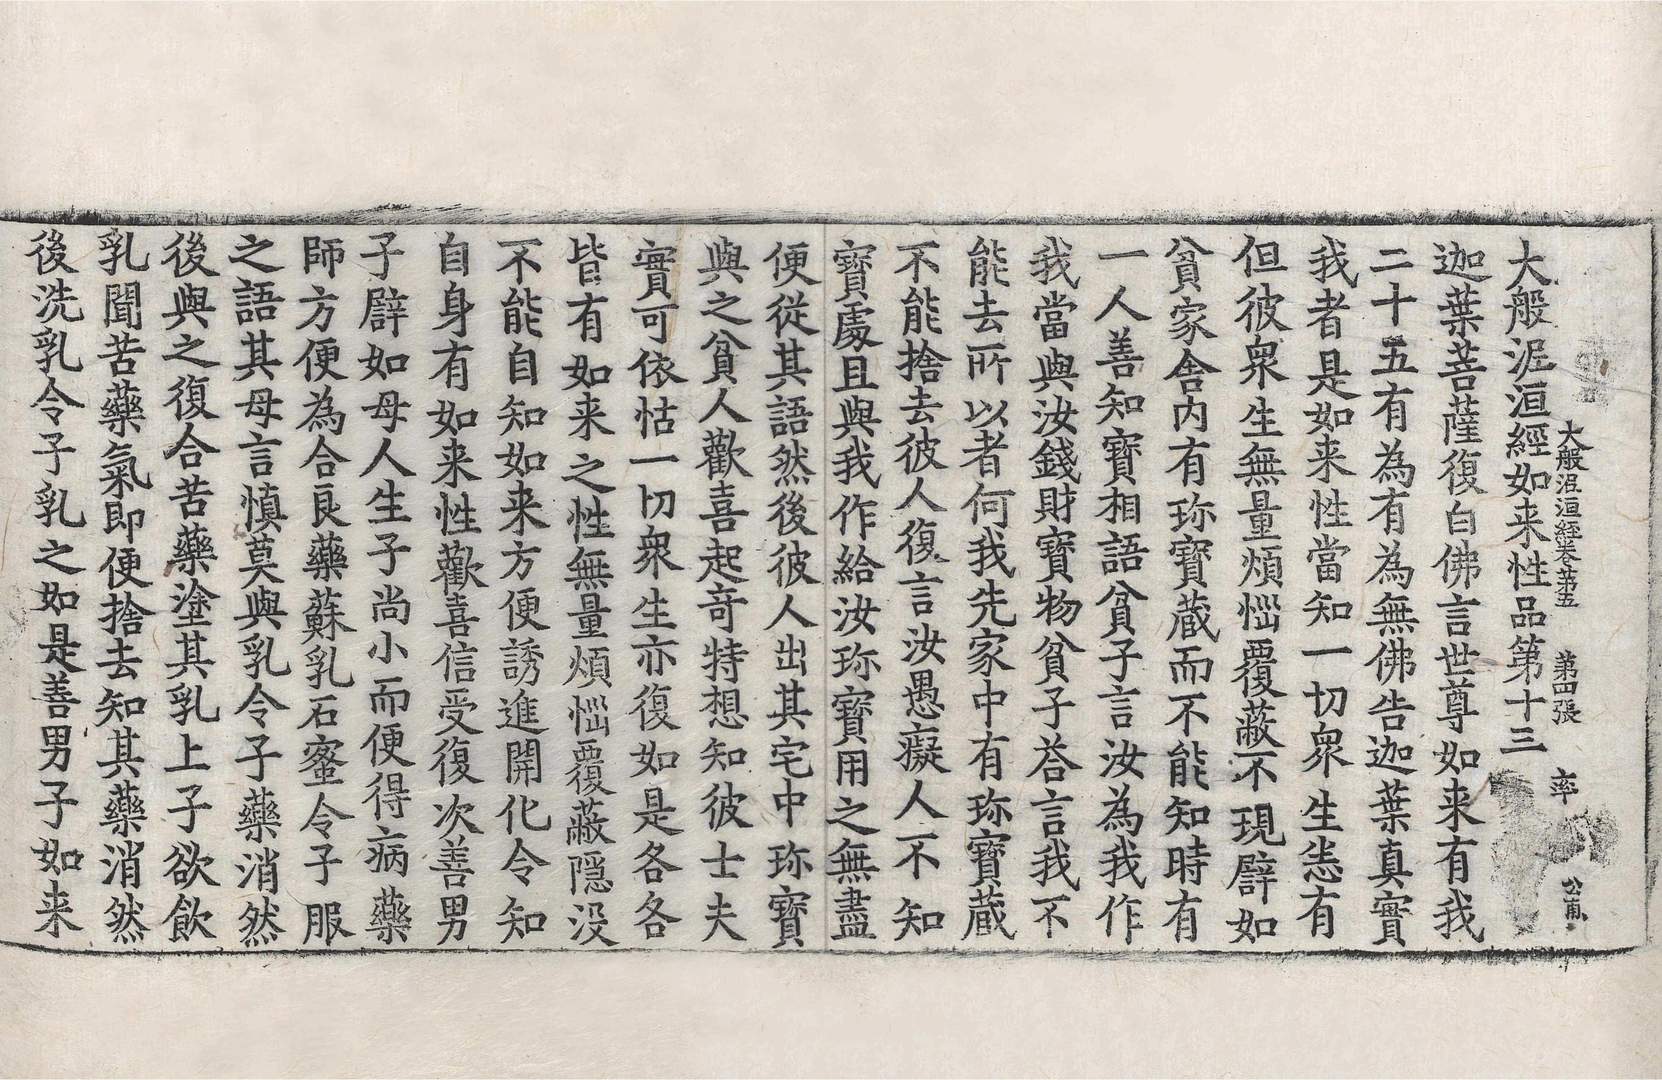 大般泥洹經卷第五　第四張　率　公甫
大般泥洹經如来性品第十三
迦葉菩薩復白佛言世尊如来有我
二十五有為有為無佛告迦葉真實
我者是如来性當知一切衆生悉有
但彼衆生無量煩惱覆蔽不現譬如
貧家舍内有珎寶蔵而不能知時有
一人善知寶相語貧子言汝為我作
我當與汝錢財寶物貧子荅言我不
能去所以者何我先家中有珎寶蔵
不能捨去彼人復言汝愚癡人不知
寶處且與我作給汝珎寶用之無盡
便從其語然後彼人出其宅中珎寶
與之貧人歡喜起竒特想知彼士夫
實可依怙一切衆生亦復如是各各
皆有如来之性無量煩惱覆蔽隱没
不能自知如来方便誘進開化令知
自身有如来性歡喜信受復次善男
子譬如母人生子尚小而便得病藥
師方便為合良藥蘇乳石蜜令子服
之語其母言慎莫與乳令子藥消然
後與之復合苦藥塗其乳上子欲飲
乳聞苦藥氣即便捨去知其藥消然
後洗乳令子乳之如是善男子如来